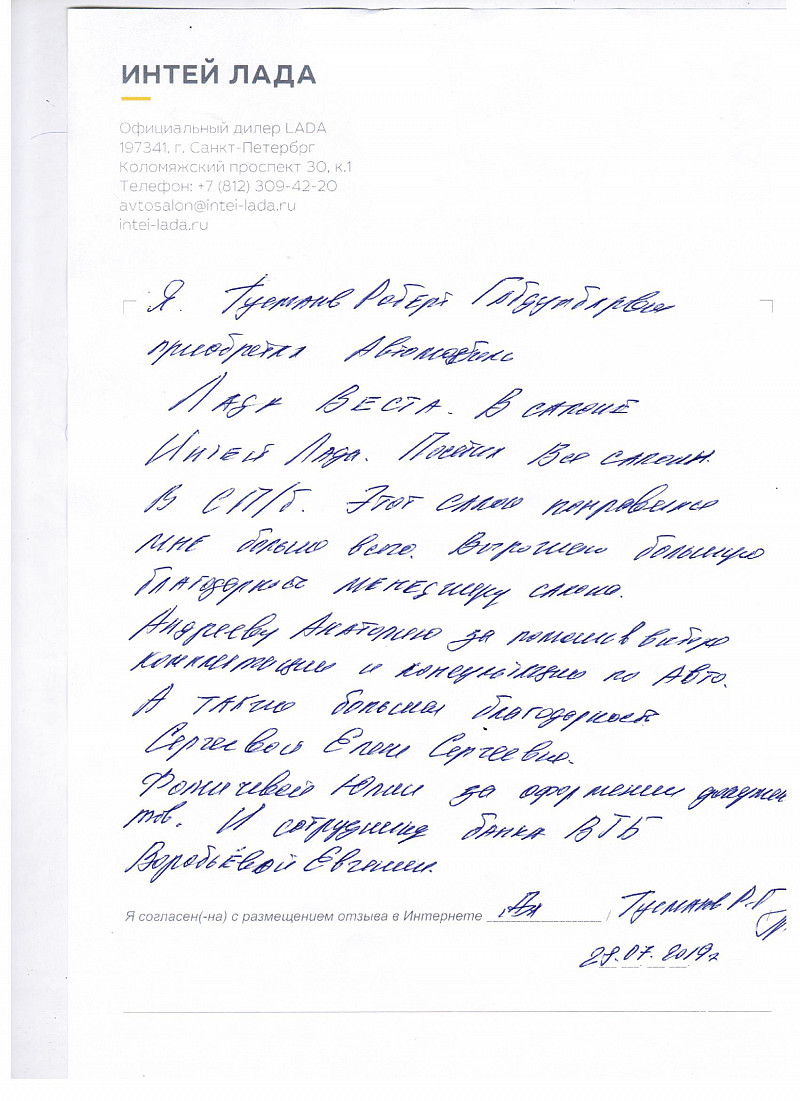 ИНТЕЙ ЛАДА
Официальный дилер LADA
197341, г. Санкт-Петербрг
Коломяжский проспект 30, к.1
Телефон: +7 (812) 309-42-20
avtosalon@intei-lada.ru
intei-lada.ru
Я. Гусманов Роберт
приобретил Автомобиль
Лада Веста. В салоне
Интей Лада. Посетил Все салоны.
В СП/б. Этот салон понравился
мне больше всего. Выражаю большую
благодарность менеджеру салона.
Андрееву Анатолию за помощь в выборе
комплектации и консультацию по Авто.
А также большая благодарность
Сергеевой Елене Сергеевне.
Фомичевой Юлии за оформлении докумен
тов. И сотруднице банка ВТБ
Воробьёвой Евгении.
Я согласен(-на) с размещением отзыва в Интернете Да / Гусманов Р.Г
29.07.2019г